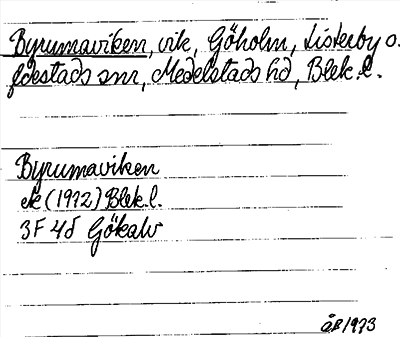 Byrumaviken, vik, Göholm, Listerby o.
Edestads snr, Medelstads hd, Blek. l.
Byrumaviken
ek (1972) Blek. l.
3F 4d Gökalv
ÅP 1973